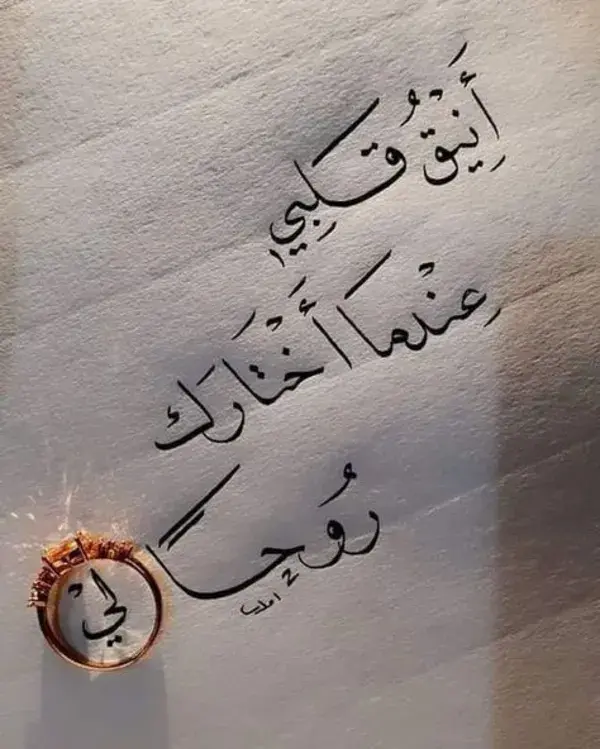 أَنِيْقٌ قَلبِي
عِنْدمَا أَخْتَارَك
رُوحًا لِيْ